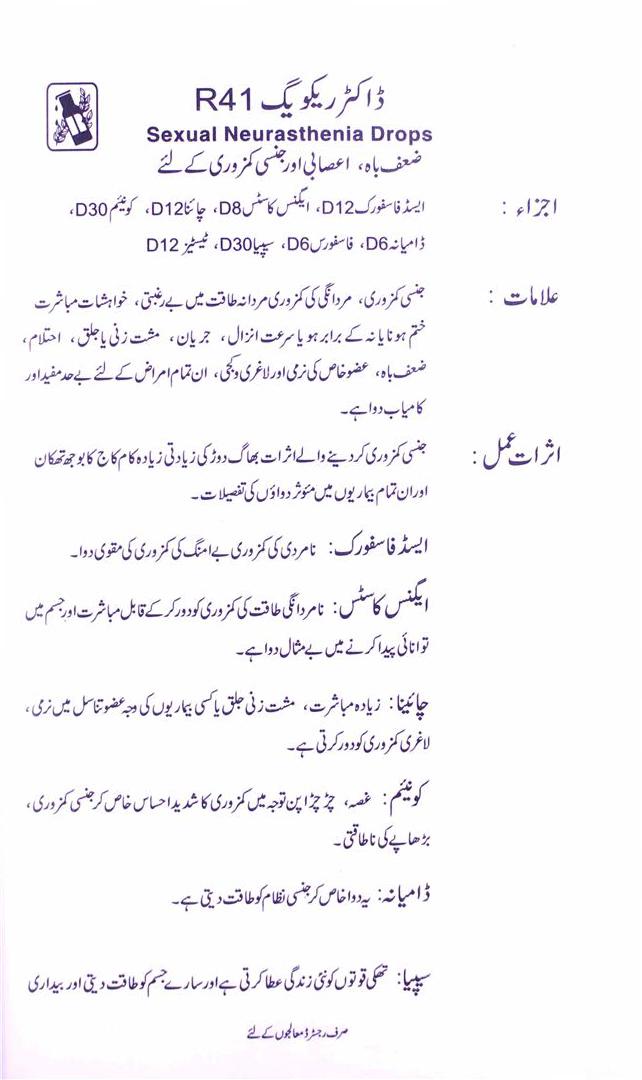 ڈاکٹر ریکویگ R41
Sexual Neurasthenia Drops
ضعف باہ، اعصابی اور جنسی کمزوری کے لئے
اجزاء : ایسڈ فاسفورک D12، ایگنس کاسٹس D8، چائنا D12، کونیئم D30،
ڈامیانہ D6، فاسفورس D6، سیپیا D30، ٹیسٹیز D12
علامات : جنسی کمزوری، مردانگی کی کمزوری مردانہ طاقت میں بے رغبتی، خواہشات مباشرت
ختم ہونا یا نہ کے برابر ہو یا سرعت انزال، جریان، مشت زنی یا جلق، احتلام،
ضعف باہ، عضو خاص کی نرمی اور لاغری و کجی، ان تمام امراض کے لئے بے حد مفید اور
کامیاب دوا ہے۔
اثرات عمل : جنسی کمزوری کر دینے والے اثرات بھاگ دوڑ کی زیادتی زیادہ کام کاج کا بوجھ تھکان
اور ان تمام بیماریوں میں مئوثر دواؤں کی تفصیلات۔
ایسڈ فاسفورک: نامردی کی کمزوری بے امنگ کی کمزوری کی مقوی دوا۔
ایگنس کاسٹس: نامردانگی طاقت کی کمزوری کو دور کر کے قابل مباشرت اور جسم میں
توانائی پیدا کرنے میں بے مثال دوا ہے۔
چائینا: زیادہ مباشرت، مشت زنی جلق یا کسی بیماریوں کی وجہ عضو تناسل میں نرمی،
لاغری کمزوری کو دور کرتی ہے۔
کونیئم: غصہ، چڑچڑا پن توجہ میں کمزوری کا شدید احساس خاص کر جنسی کمزوری،
بڑھاپے کی ناطاقتی۔
ڈامیانہ: یہ دوا خاص کر جنسی نظام کو طاقت دیتی ہے۔
سیپیا: تھکی قوتوں کو نئی زندگی عطا کرتی ہے اور سارے جسم کو طاقت دیتی اور بیداری
صرف رجسٹرڈ معالجوں کے لئے